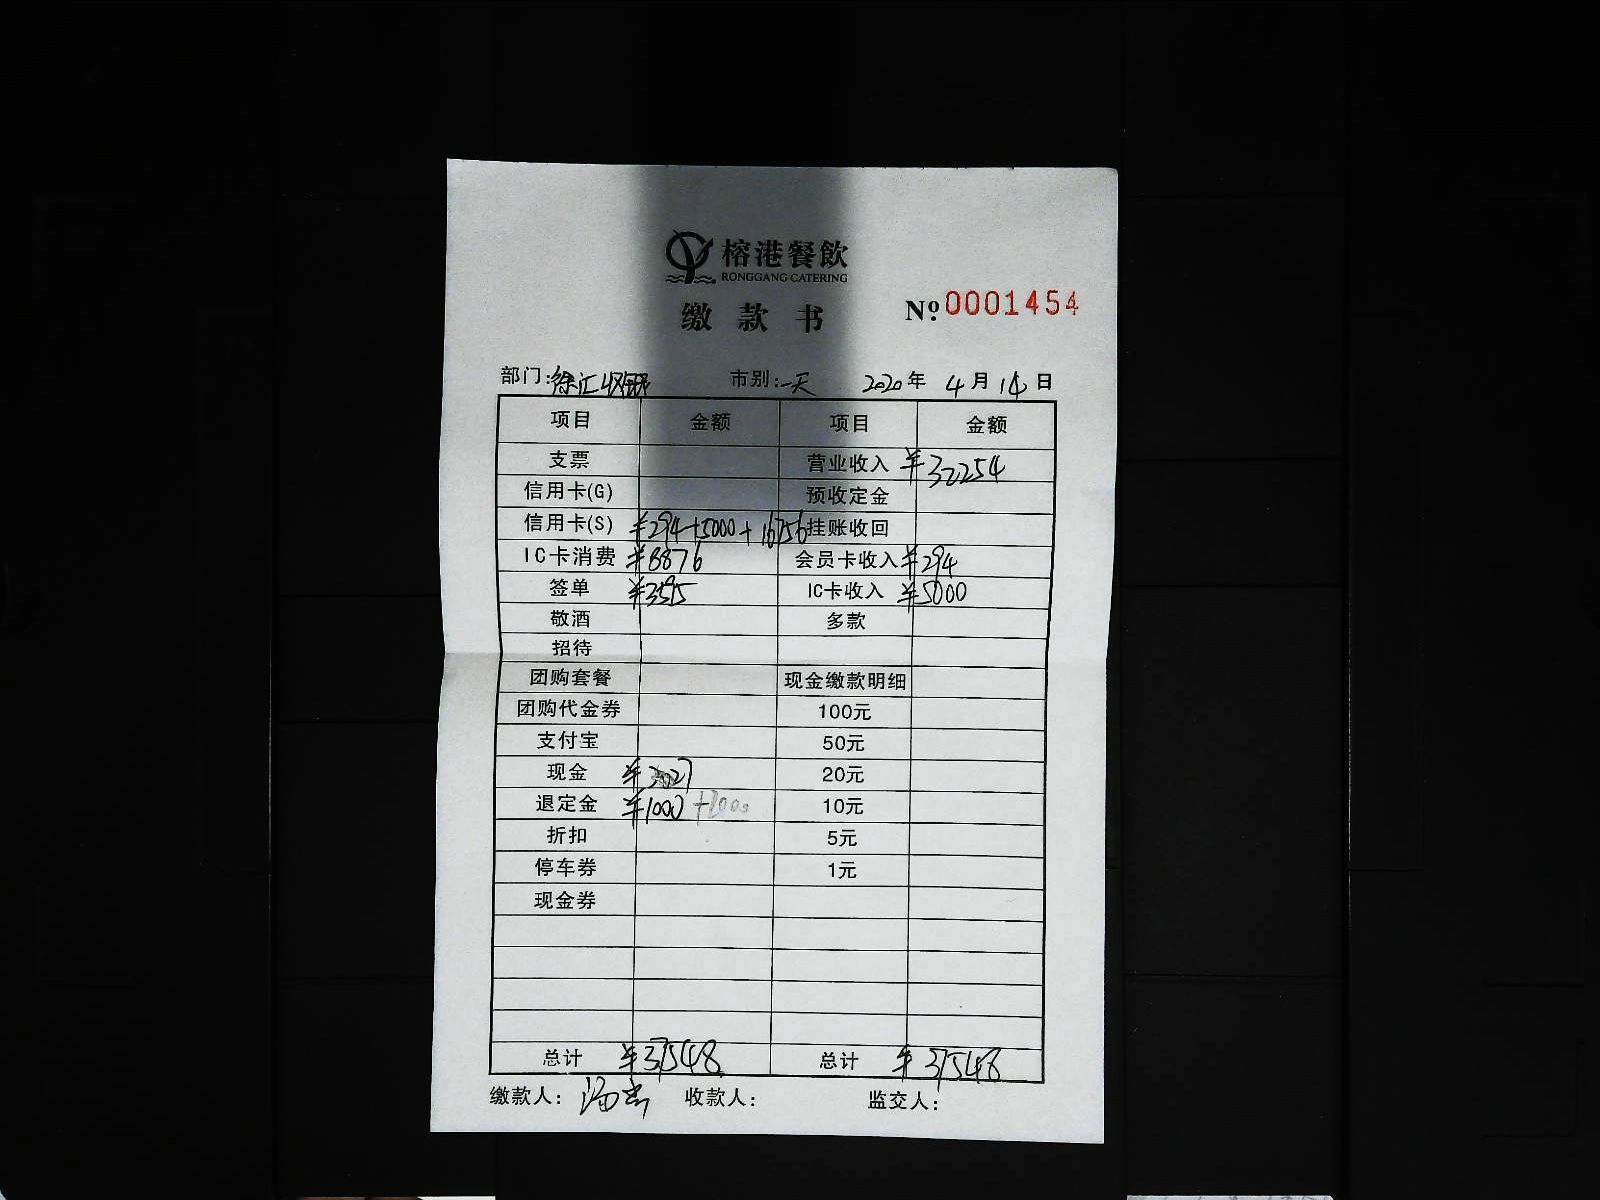 榕港餐飲
RONGGANG CATERING
缴款书
Nº 0001454
部门:徐汇收银 市别:一天 2020年4月14日
项目 金额 项目 金额
支票 营业收入 ¥32254
信用卡(G) 预收定金
信用卡(S) ¥294+5000+16756 挂账收回
IC卡消费 ¥8876 会员卡收入 ¥294
签单 ¥3595 IC卡收入 ¥5000
敬酒 多款
招待
团购套餐 现金缴款明细
团购代金券 100元
支付宝 50元
现金 20元
退定金 ¥1000 10元
折扣 5元
停车券 1元
现金券
总计 ¥37548 总计 ¥37548
缴款人: 收款人: 监交人: